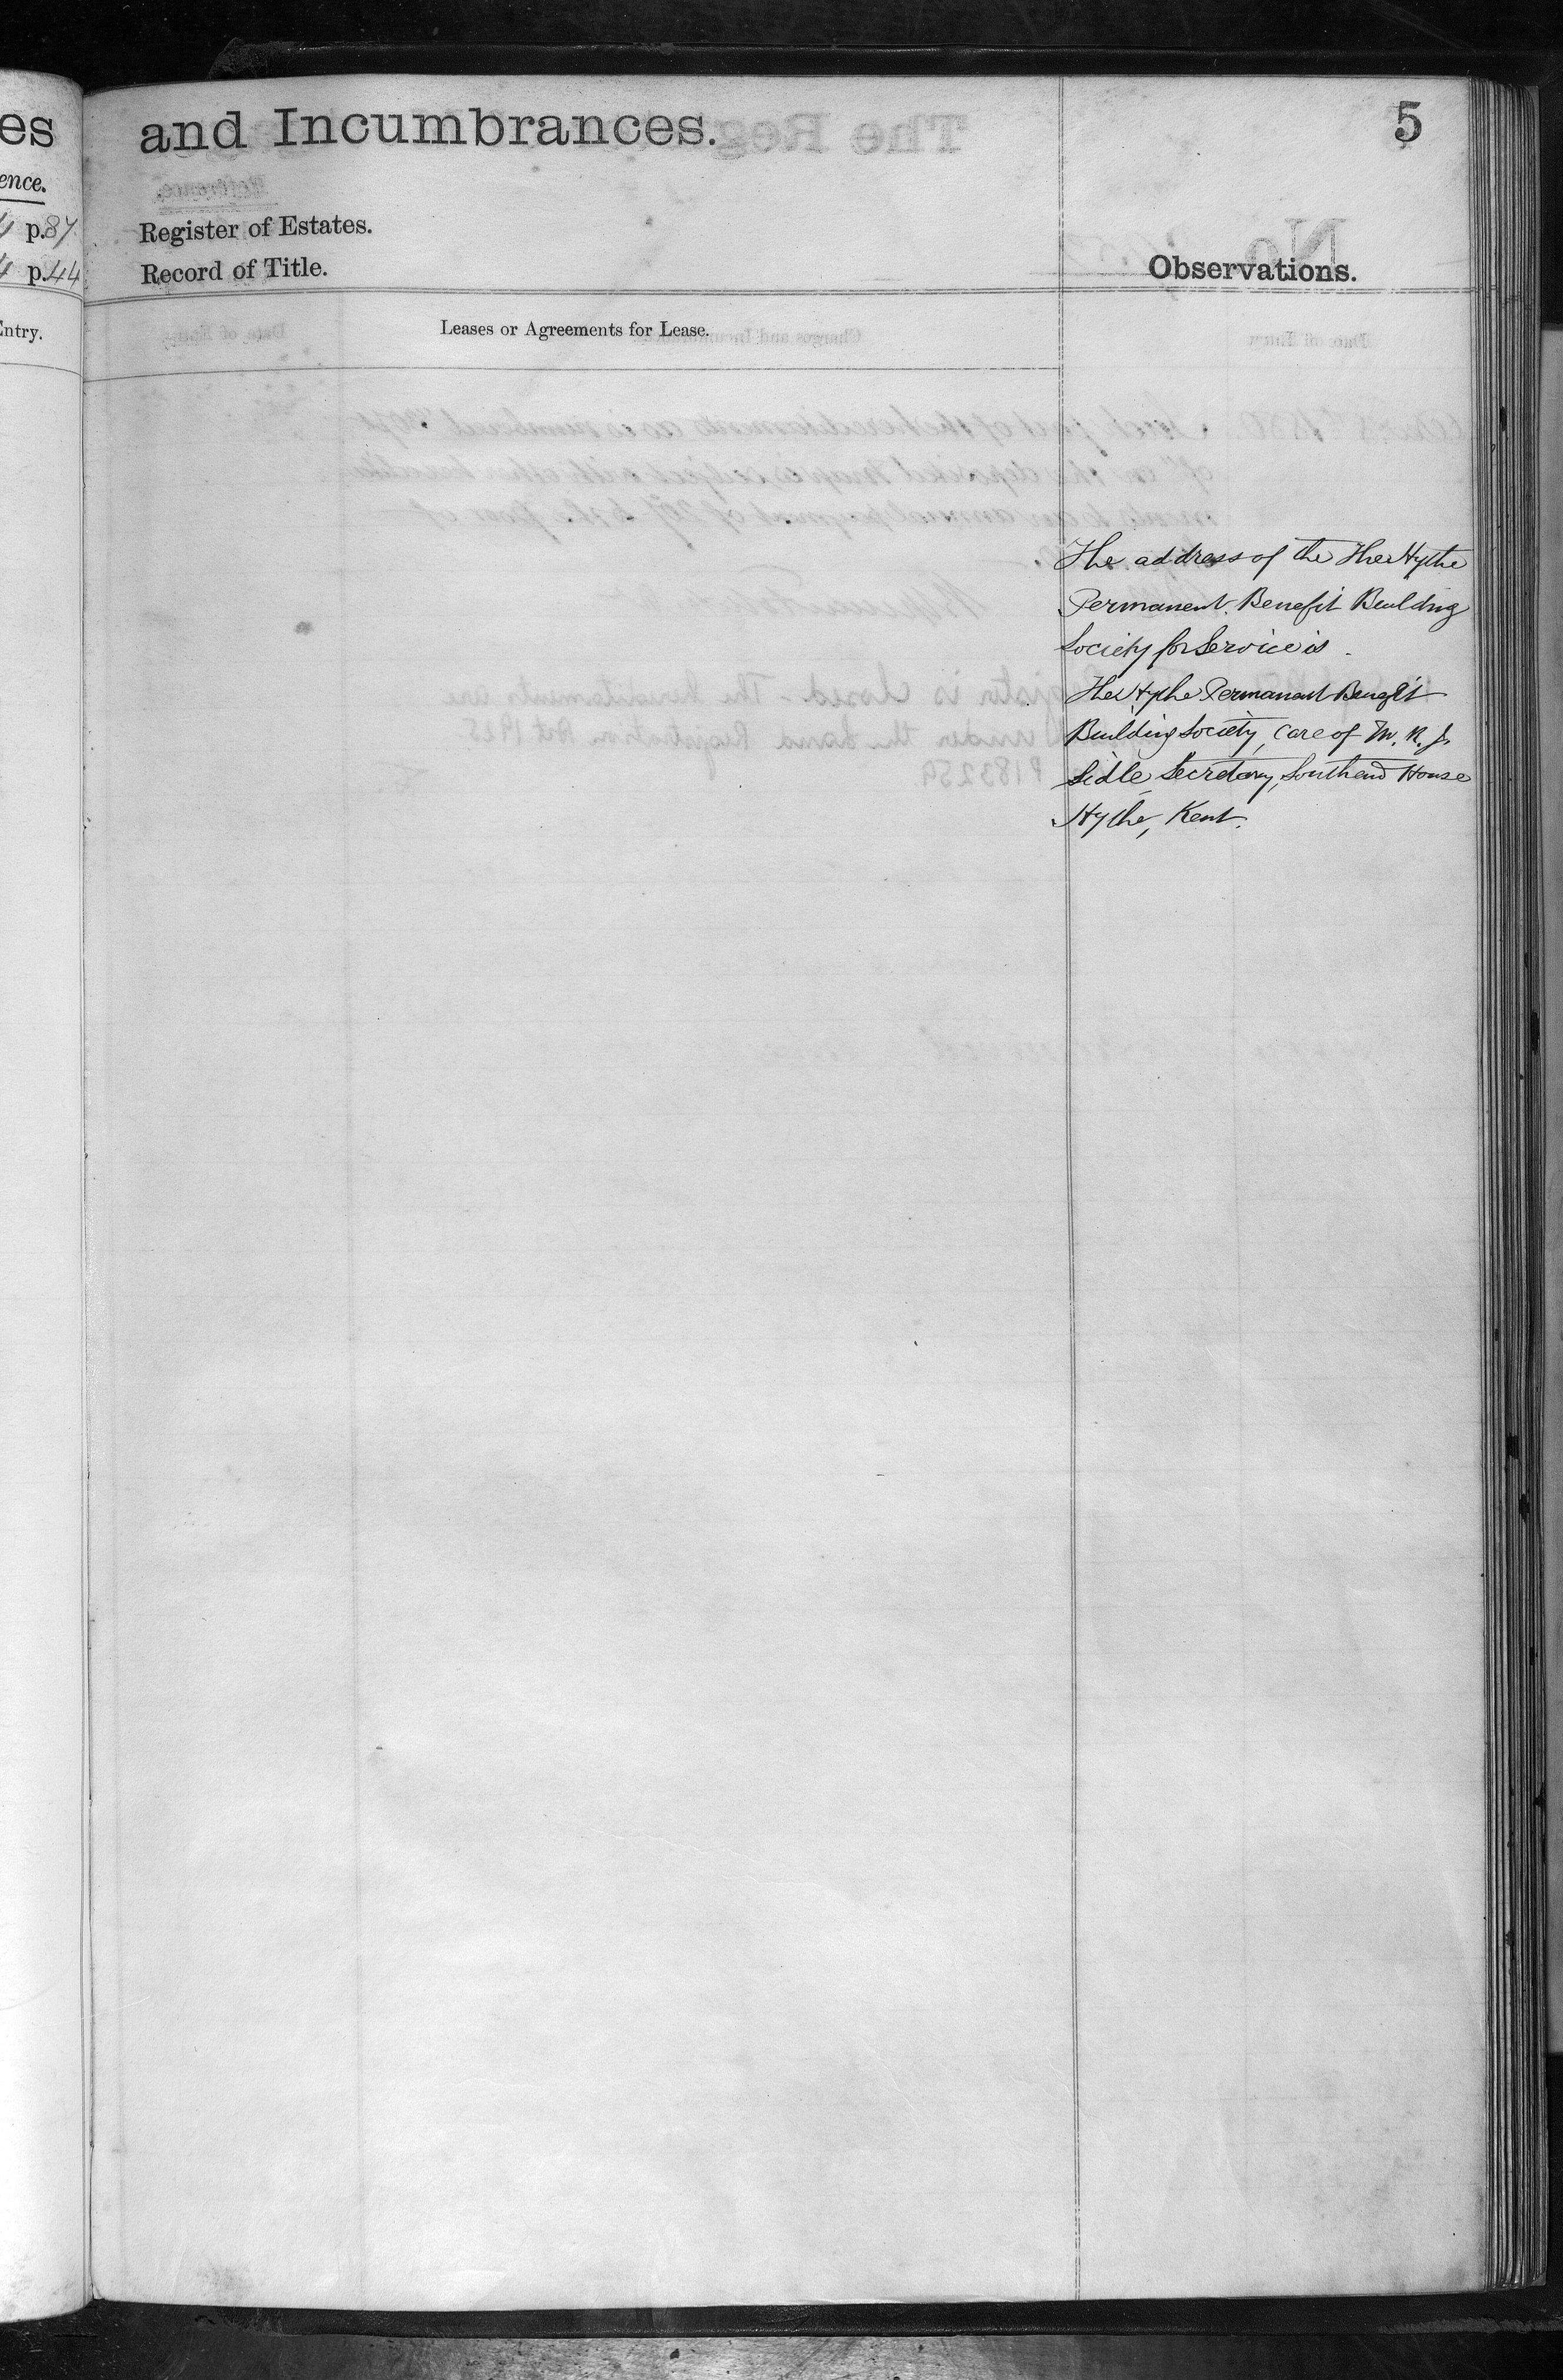 es
ence.
p.87
p.44
Entry.
and Incumbrances.
5
Register of Estates.
Record of Title.
Observations.
Leases or Agreements for Lease.
The address of the The Hythe
Permanent Benefit Building
Society for Service is
The Hythe Permanent Benefit
Building Society, care of M. R. J.
Sidle, Secretary, Southend House
Hythe, Kent.